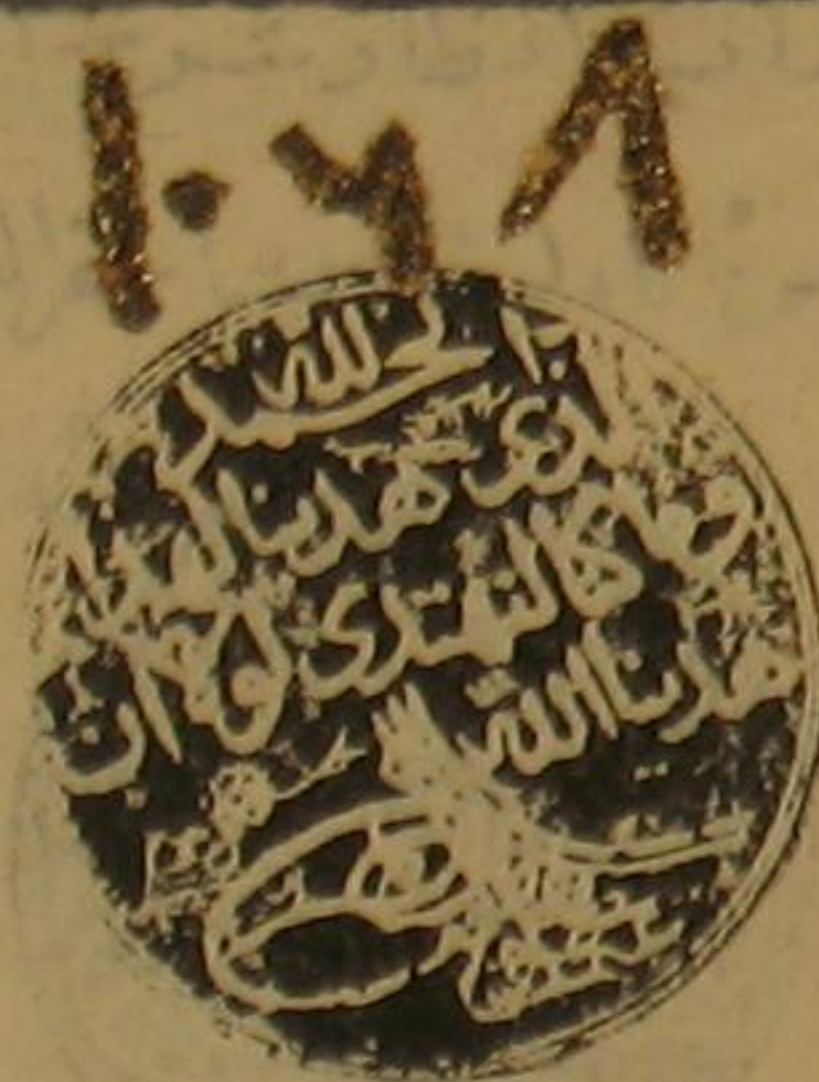 ١٠٦٨
الحمد لله
الذى هدينا لهذا
وما كنا لنهتدى لولا ان
هدينا الله